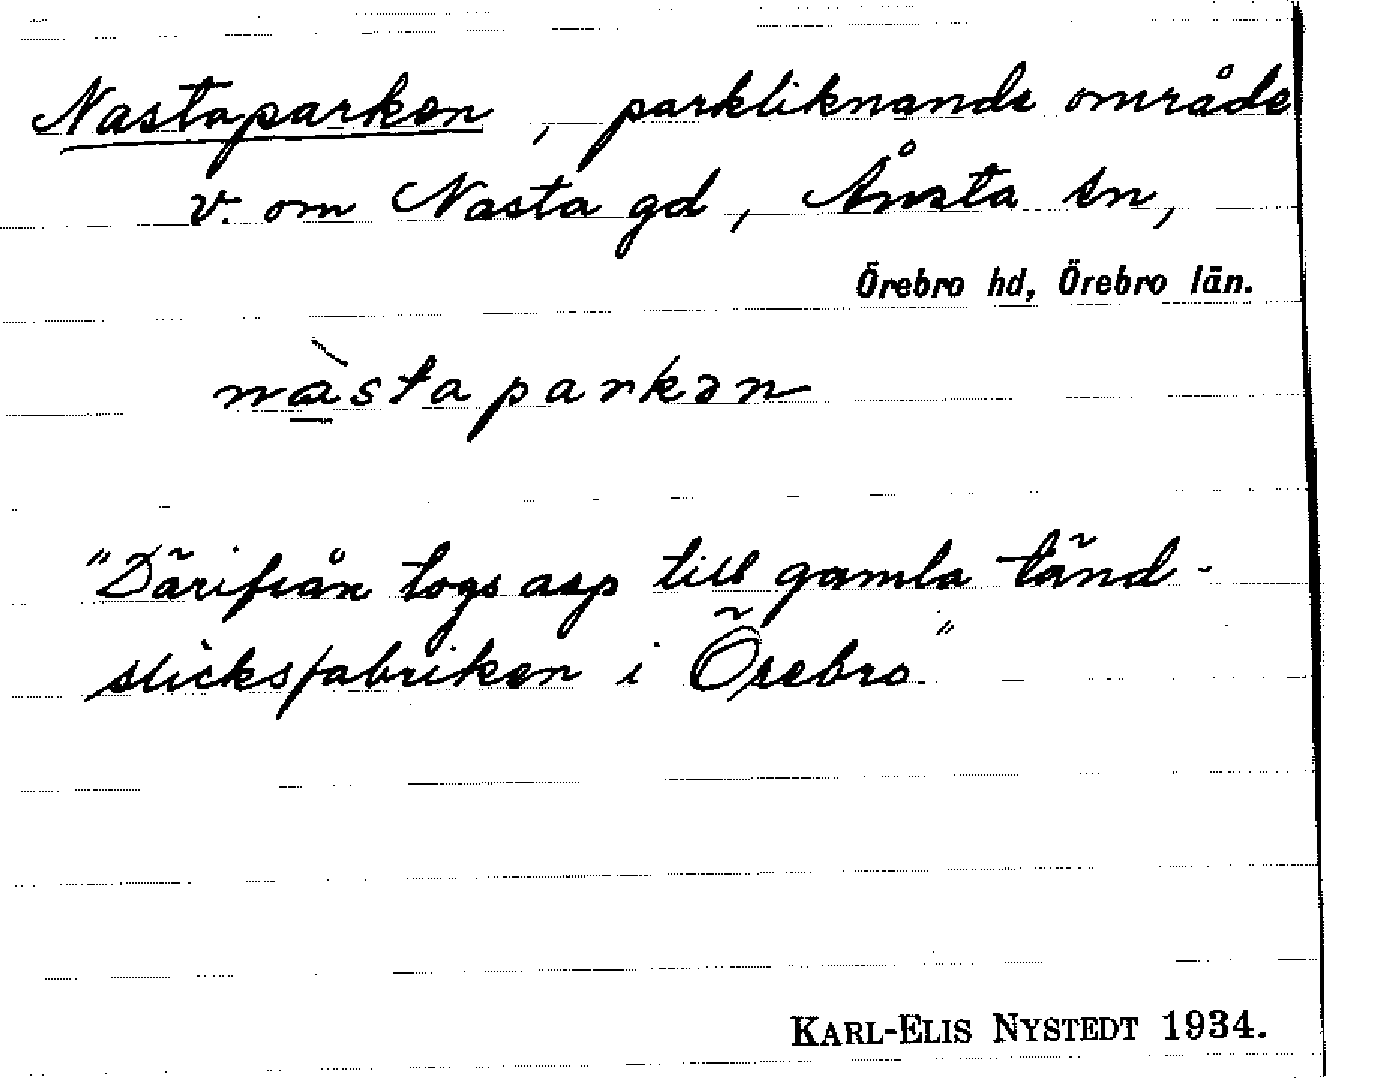 Nastaparken, parkliknande område
v. om Nasta gd, Ånsta sn,
Örebro hd, Örebro län.
nàstaparkən
"Därifrån togs asp till gamla tänd-
sticksfabriken i Örebro."
KARL-ELIS NYSTEDT 1934.